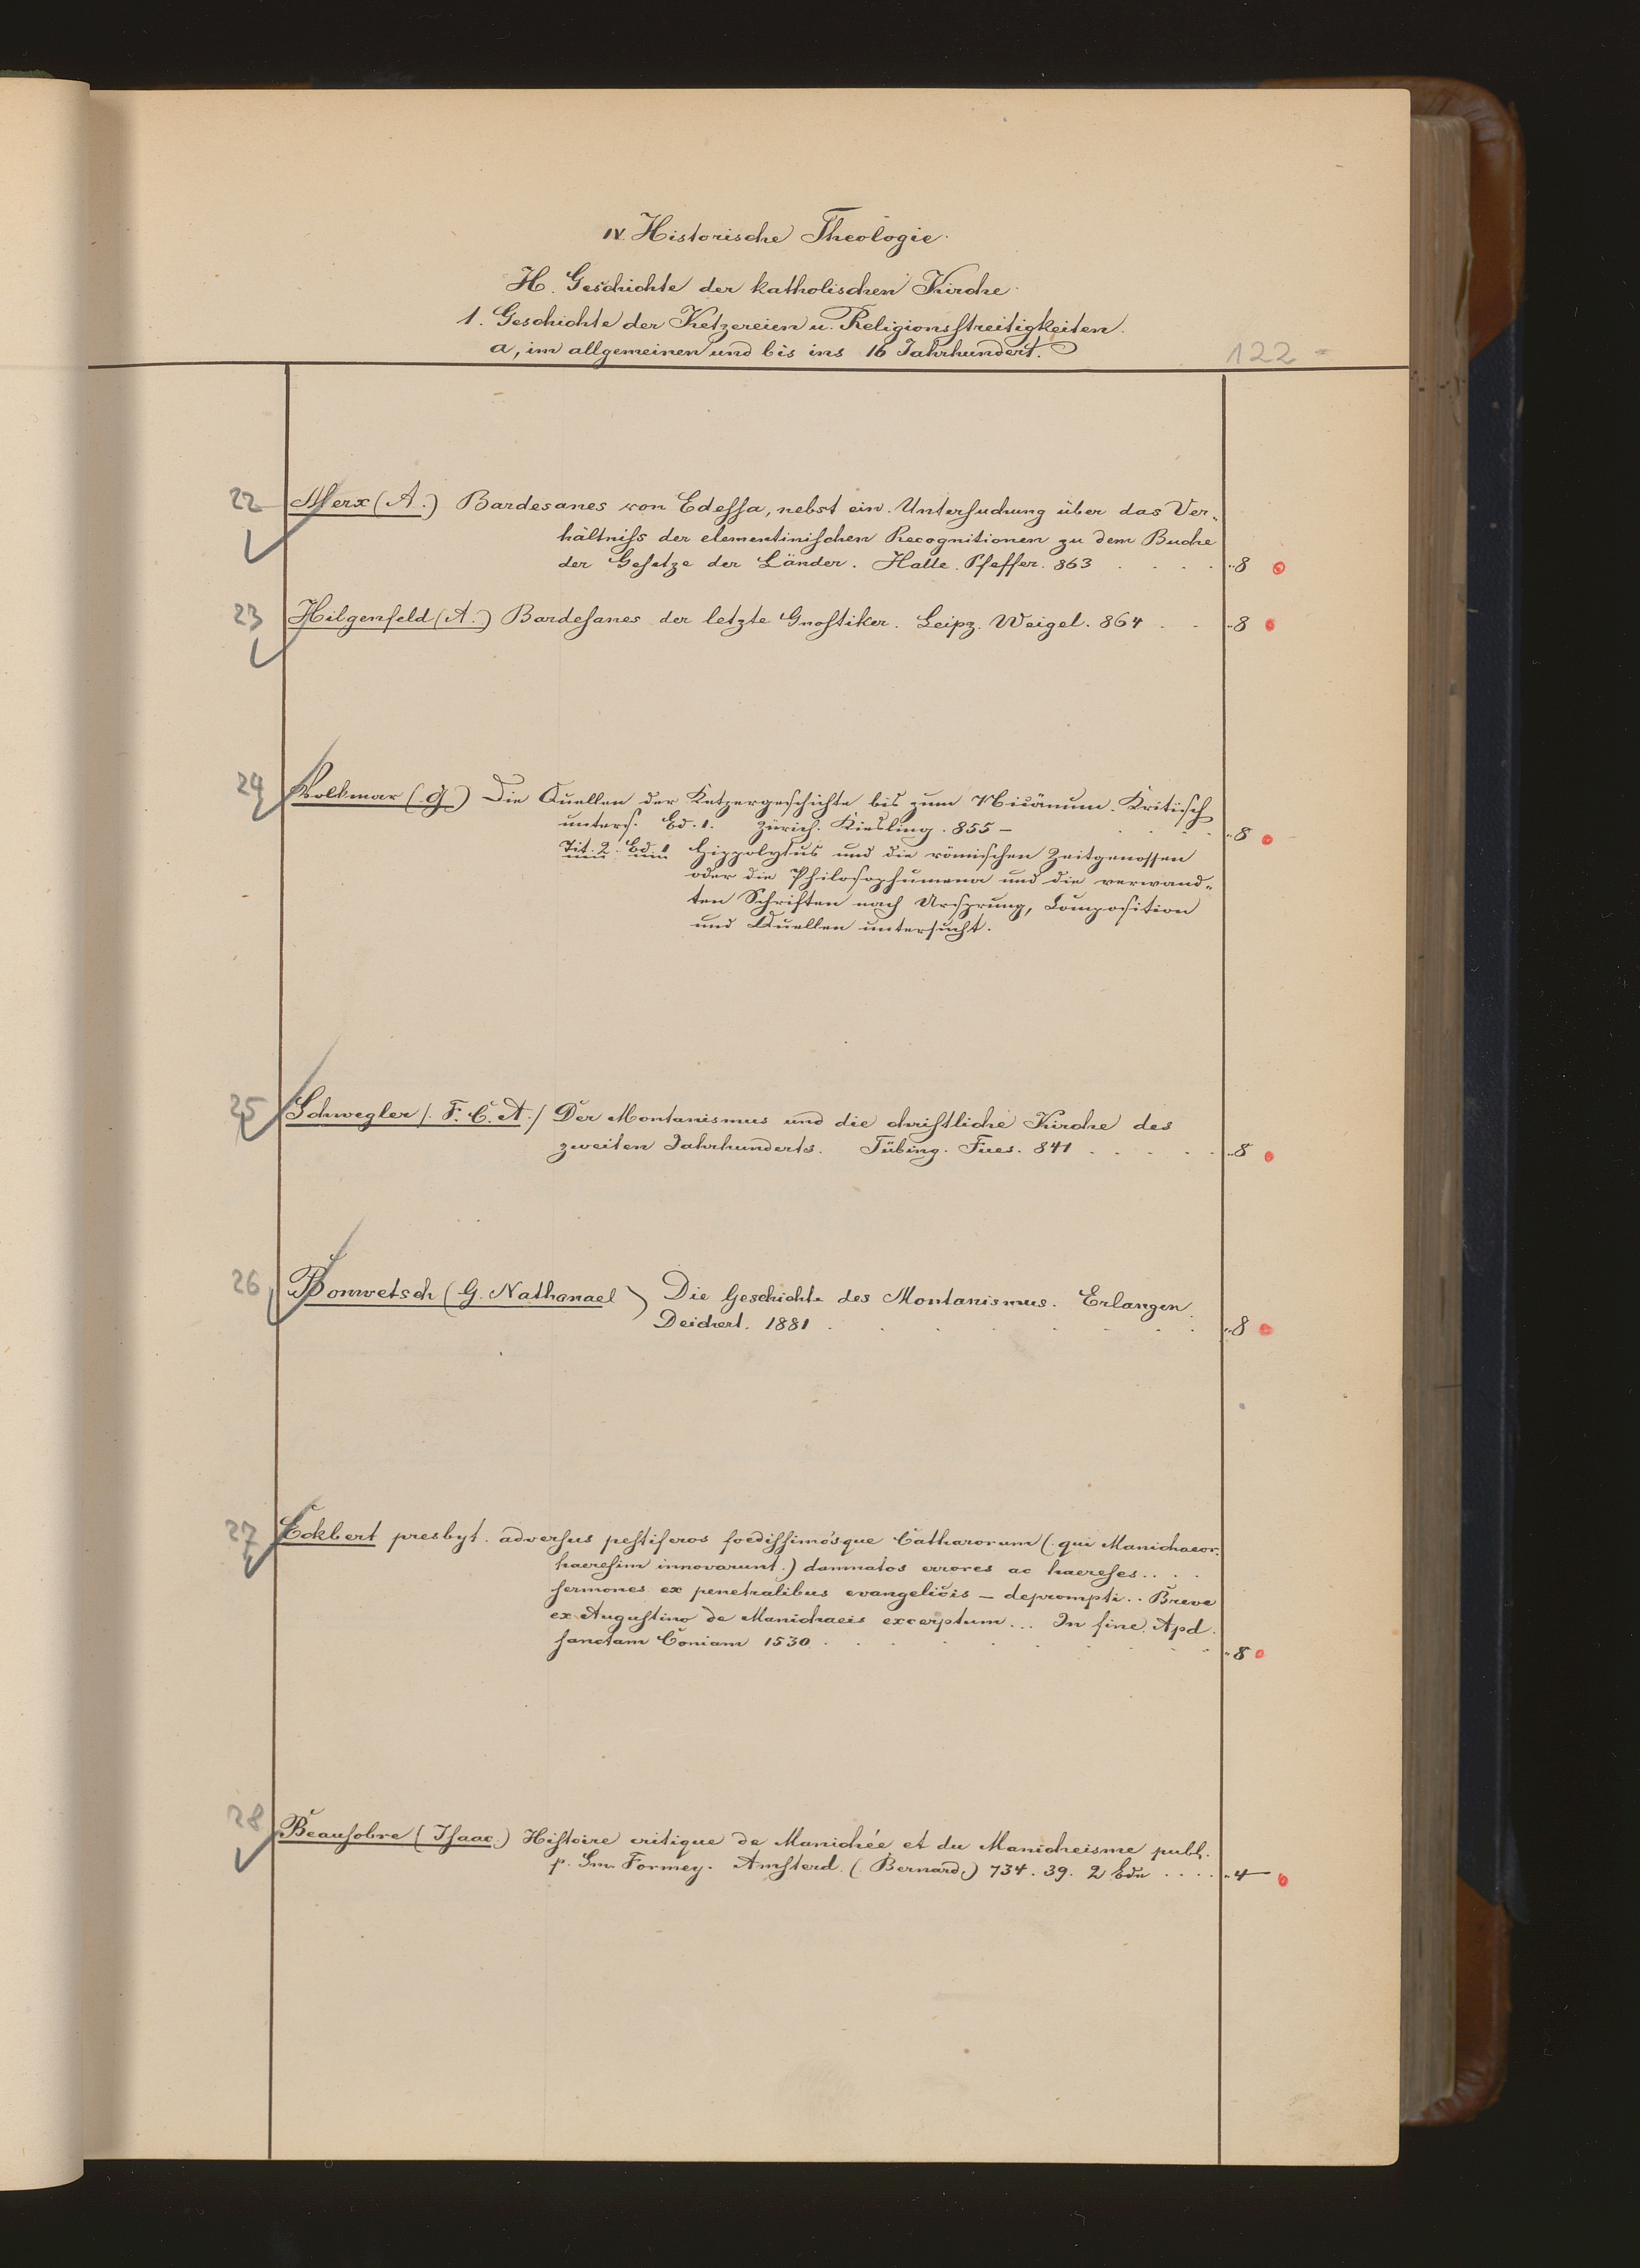 IV. Historische Theologie.
H. Geschichte der katholischen Kirche.
1. Geschichte der Ketzereien u. Religionsstreitigkeiten.
a, im allgemeinen und bis ins 16 Jahrhundert.
122
22 Merx (A.) Bardesanes von Edessa, nebst ein. Untersuchung über das Ver-
hältniss der clementinischen Recognitionen zu dem Buche
der Gesetze der Länder. Halle. Pfeffer. 863 . . . . „8
23 Hilgenfeld (A.) Bardesanes der letzte Gnostiker. Leipz. Weigel. 864 . . „8
24 Volkmar (G.) Die Quellen der Ketzergeschichte bis zum Nicänum. Kritisch
unters. Bd. 1. Zürich. Kiesling. 855 – . . . . „8
Tit. 2. Bd. 1 Hippolytus und die römischen Zeitgenossen
oder die Philosophumena und die verwand-
ten Schriften nach Ursprung, Composition
und Quellen untersucht.
25 Schwegler (F. C. A.) Der Montanismus und die christliche Kirche des
zweiten Jahrhunderts. Tübing. Fues. 841 . . . . . „8
26 Bonwetsch (G. Nathanael) Die Geschichte des Montanismus. Erlangen.
Deichert. 1881 . . . . . . . „8
27 Eckbert presbyt. adversus pestiferos foedissimosque Catharorum (qui Manichaeor.
haeresim innovarunt.) damnatos errores ac haereses. . . .
sermones ex penetralibus evangelicis – deprompti. . Breve
ex Augustino de Manichaeis excerptum... In fine. Apd.
sanctam Coniam 1530 . . . . . . . . „8
28 Beausobre (Isaac.) Histoire critique de Manichée et du Manicheisme publ.
p. Sm. Formey. Amsterd. (Bernard.) 734. 39. 2 Bde . . . . „4